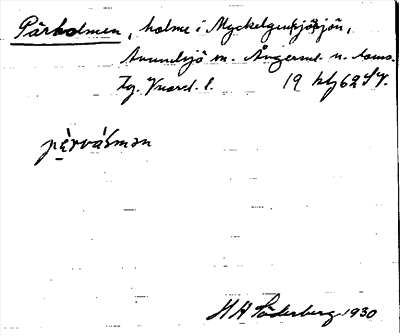 Pärholmen, holme i Myckelgensjösjön,
Anundsjö sn. Ångerml. n. doms.
Tg. Vuord. l. 19 kbj 62 SV.
pärvášmən
H H Söderberg 1930